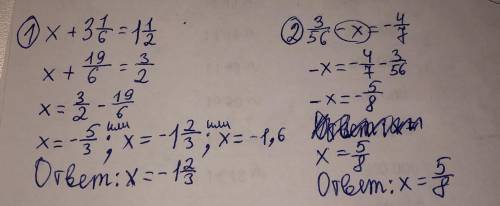 ① x + 3 1/6 = 1 1/2
x + 19/6 = 3/2
x = 3/2 - 19/6
x = -5/3; или x = -1 2/3; или x = -1,6
Ответ: x = -1 2/3
② 3/56 - x = -4/7
-x = -4/7 - 3/56
-x = -5/8
x = 5/8
Ответ: x = 5/8